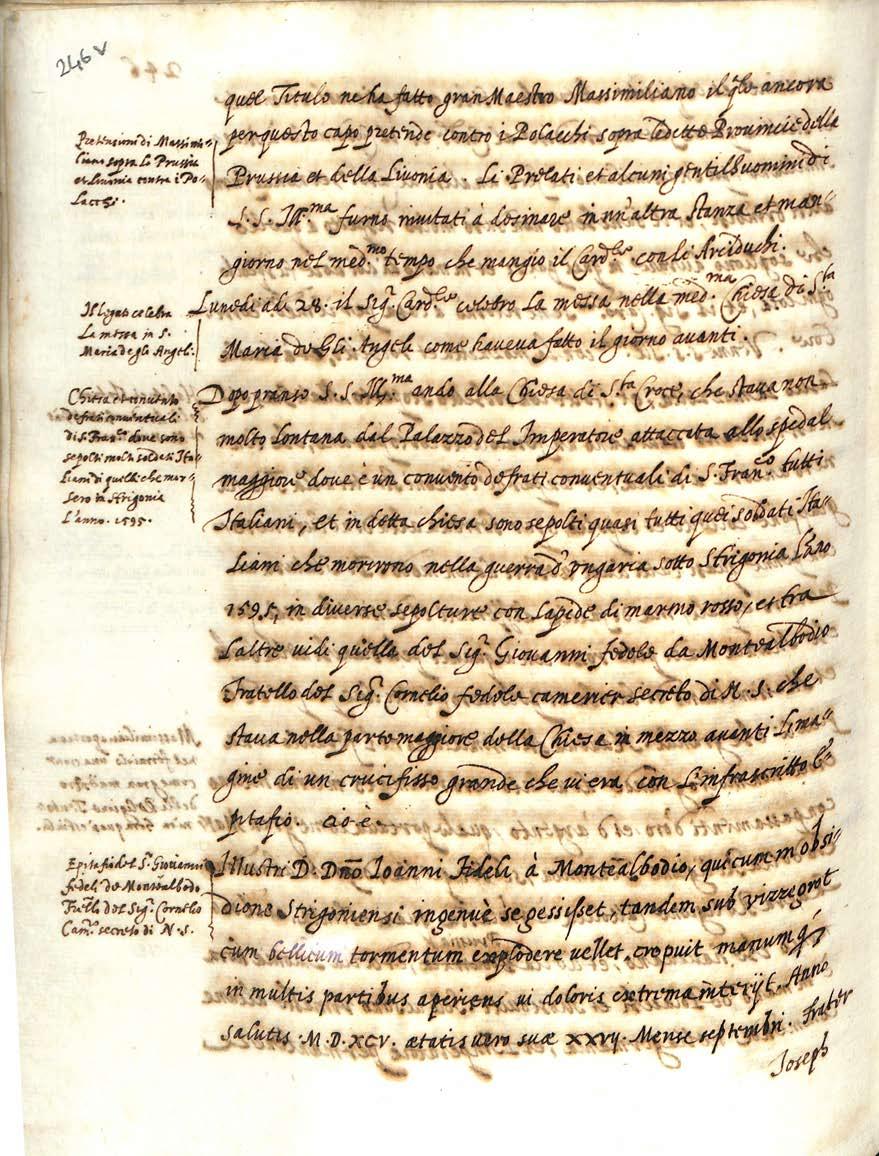 246 v
quel Titulo ne ha fatto gran Maestro Massimiliano il qle ancora
per questo capo pretende contro i Polacchi sopra le dette Provincie della
Prussia et della Livonia. Li Prelati et alcuni gentilhuomini di
S. S. Ill.ma furno invitati à desinare in un'altra stanza et man-
giorno nel med.mo tempo che mangio il Card.le con li Arciduchi.
Lunedi adi 28. il Sig.r Card.le celebro la messa nella med.ma Chiesa di S.ta
Maria de Gli Angeli come haveva fatto il giorno avanti.
Dopo pranso S. S. Ill.ma ando alla Chiesa di S.ta Croce, che stava non
molto lontana dal Palazzo del Imperatore attaccata allo spedal
maggiore dove è un convento de frati conventuali di S. Fran.o tutti
Italiani, et in detta chiesa sono sepolti quasi tutti quei soldati Ita-
liani che morirono nella guerra d'ungaria sotto Strigonia l'ano
1595, in diverse sepolture con lapide di marmo rosso, et tra
l'altre vidi quella del Sig.r Giovanni fedele da Montealbodio
Fratello del Sig.r Cornelio fedele camerier secreto di N. S. che
stava nella parte maggiore della Chiesa in mezzo avanti l'ima-
gine di un crucifisso grande che vi era con l'infrascritto E-
pitafio. cio è
Illustri D. Dño Ioanni Fideli à Montealbodio, qui cum in obsi-
dione Strigoniensi ingenuè se gessisset, tandem sub vizzegrot
cum bellicum tormentum explodere vellet, crepuit manumq;
in multis partibus aperiens vi doloris extrema interijt. Anno
salutis M.D.XCV. ætatis vero suæ xxvij. Mense septembri. Frater
Joseph
Pretensioni di Massimi-
liano sopra la Prussia
et Livonia contra i Po-
lacchi.
Il legato celebra
la messa in S.
Maria de gli Angeli.
Chiesa et convento
de frati conventuali
di S. Fran.co dove sono
sepolti molti soldati Ita-
liani di quelli che mor-
sero in Strigonia
l'anno. 1595.
Epitafio del S.r Giovanni
fedeli de Montealbodo
Fratello del Sig.r Cornelio
Cam.re secreto di N. S.